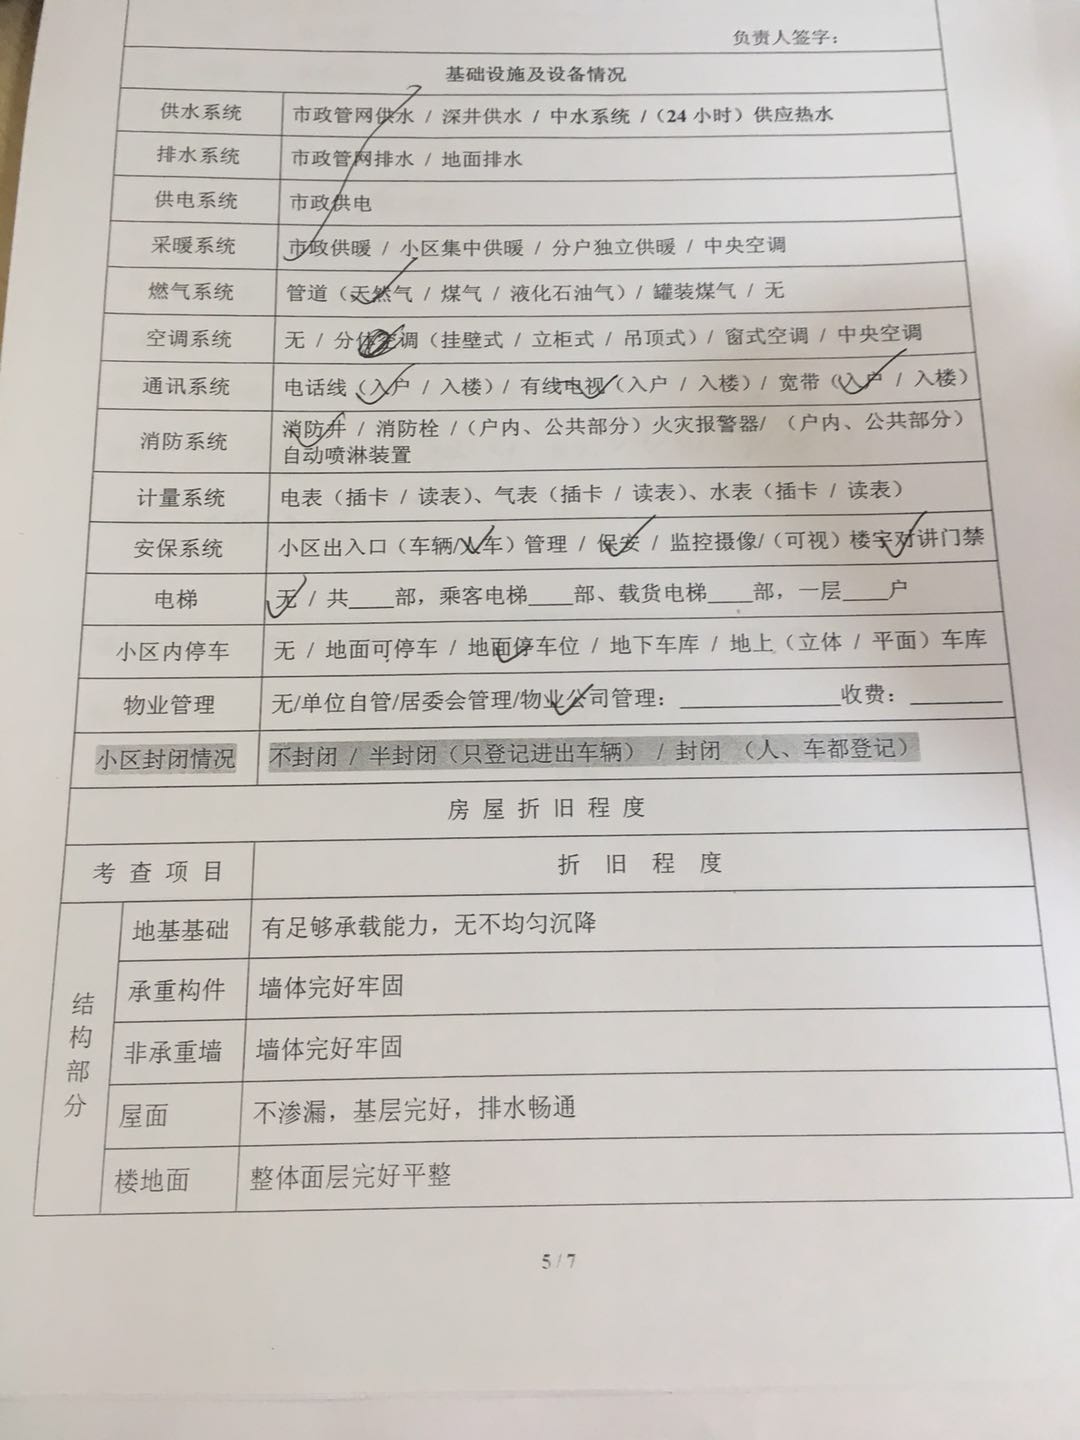 负责人签字：
基础设施及设备情况
供水系统 市政管网供水 / 深井供水 / 中水系统 /（24 小时）供应热水
排水系统 市政管网排水 / 地面排水
供电系统 市政供电
采暖系统 市政供暖 / 小区集中供暖 / 分户独立供暖 / 中央空调
燃气系统 管道（天然气 / 煤气 / 液化石油气）/ 罐装煤气 / 无
空调系统 无 / 分体空调（挂壁式 / 立柜式 / 吊顶式）/ 窗式空调 / 中央空调
通讯系统 电话线（入户 / 入楼）/ 有线电视（入户 / 入楼）/ 宽带（入户 / 入楼）
消防系统 消防井 / 消防栓 /（户内、公共部分）火灾报警器/ （户内、公共部分）
自动喷淋装置
计量系统 电表（插卡 / 读表）、气表（插卡 / 读表）、水表（插卡 / 读表）
安保系统 小区出入口（车辆/人车）管理 / 保安 / 监控摄像/（可视）楼宇对讲门禁
电梯 无 / 共____部，乘客电梯____部、载货电梯____部，一层____户
小区内停车 无 / 地面可停车 / 地面停车位 / 地下车库 / 地上（立体 / 平面）车库
物业管理 无/单位自管/居委会管理/物业公司管理：______________收费：________
小区封闭情况 不封闭 / 半封闭（只登记进出车辆） / 封闭 （人、车都登记）
房屋折旧程度
考查项目 折旧程度
结构部分
地基基础 有足够承载能力，无不均匀沉降
承重构件 墙体完好牢固
非承重墙 墙体完好牢固
屋面 不渗漏，基层完好，排水畅通
楼地面 整体面层完好平整
5 / 7